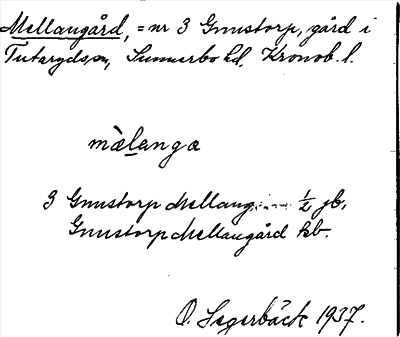 Mellangård, = nr 3 Gnustorp, gård i
Tutarydsn, Sunnerbo hd, Kronob. l.
mælanga
3 Gnustorp Mellang ½ jb,
Gnustorp Mellangård kb.
O. Segerbäck 1937.